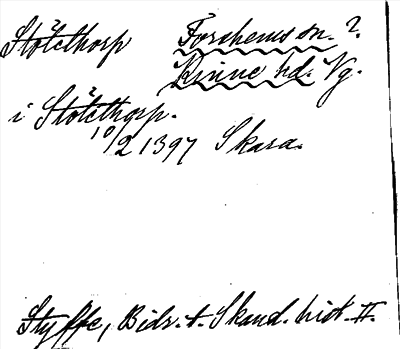 Stötethorp Forshems sn. ?
Kinne hd. Vg.
i Stötethorp.
10/2 1397 Skara.
Styffe, Bidr. t. Skand. hist. II.